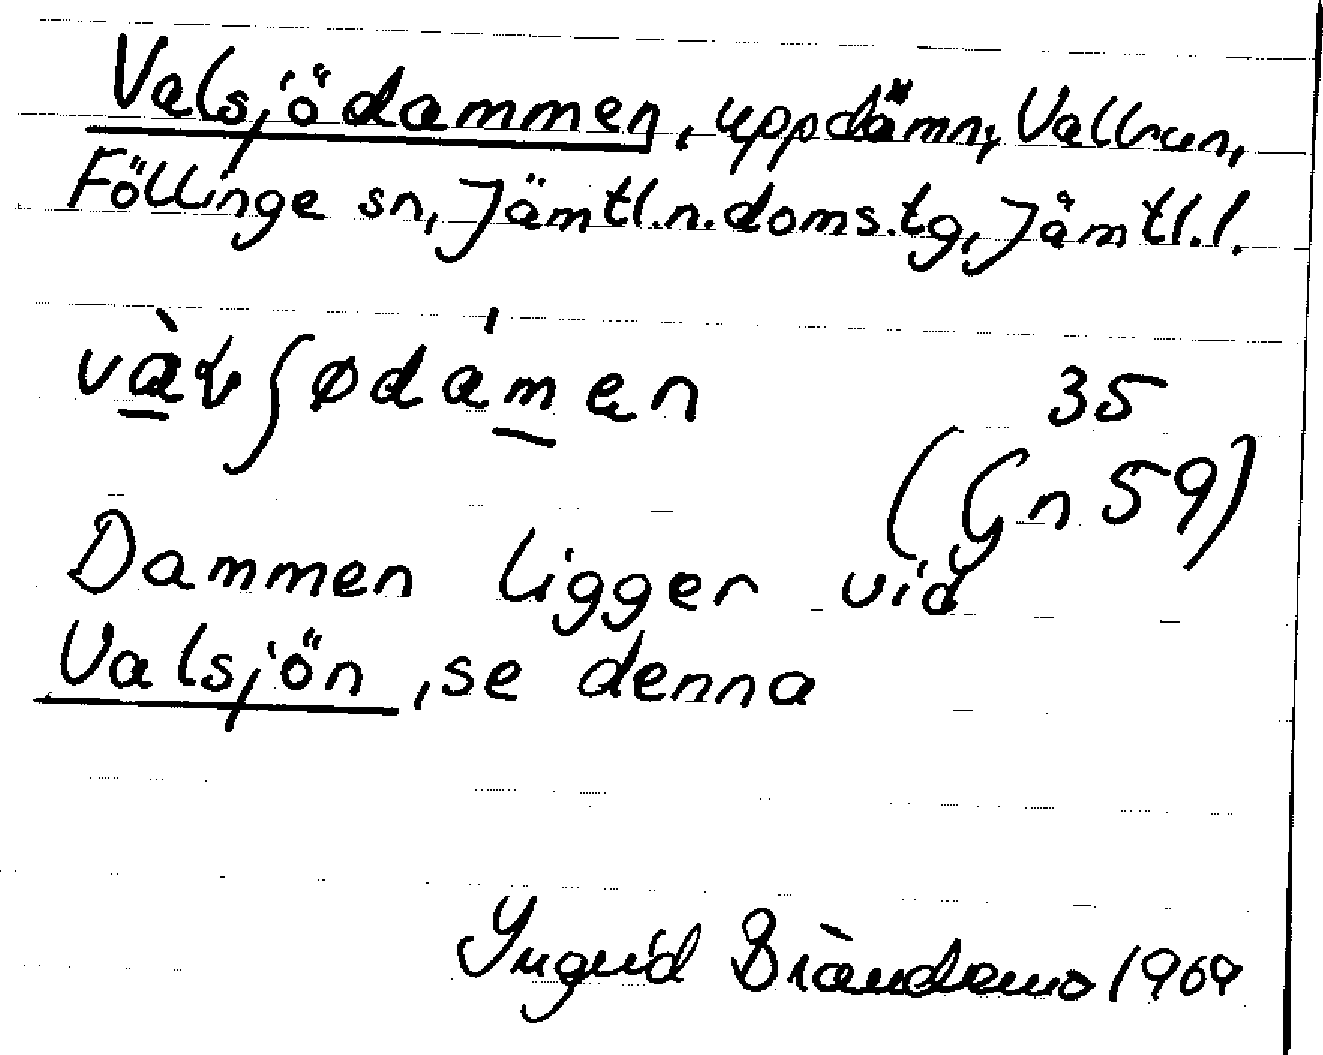 Valsjödammen, uppdämn, Vallrun,
Föllinge sn, Jämtl.n.doms.tg, Jämtl.l.
35
(Gn 59)
Dammen ligger vid
Valsjön, se denna
Ingrid 1969